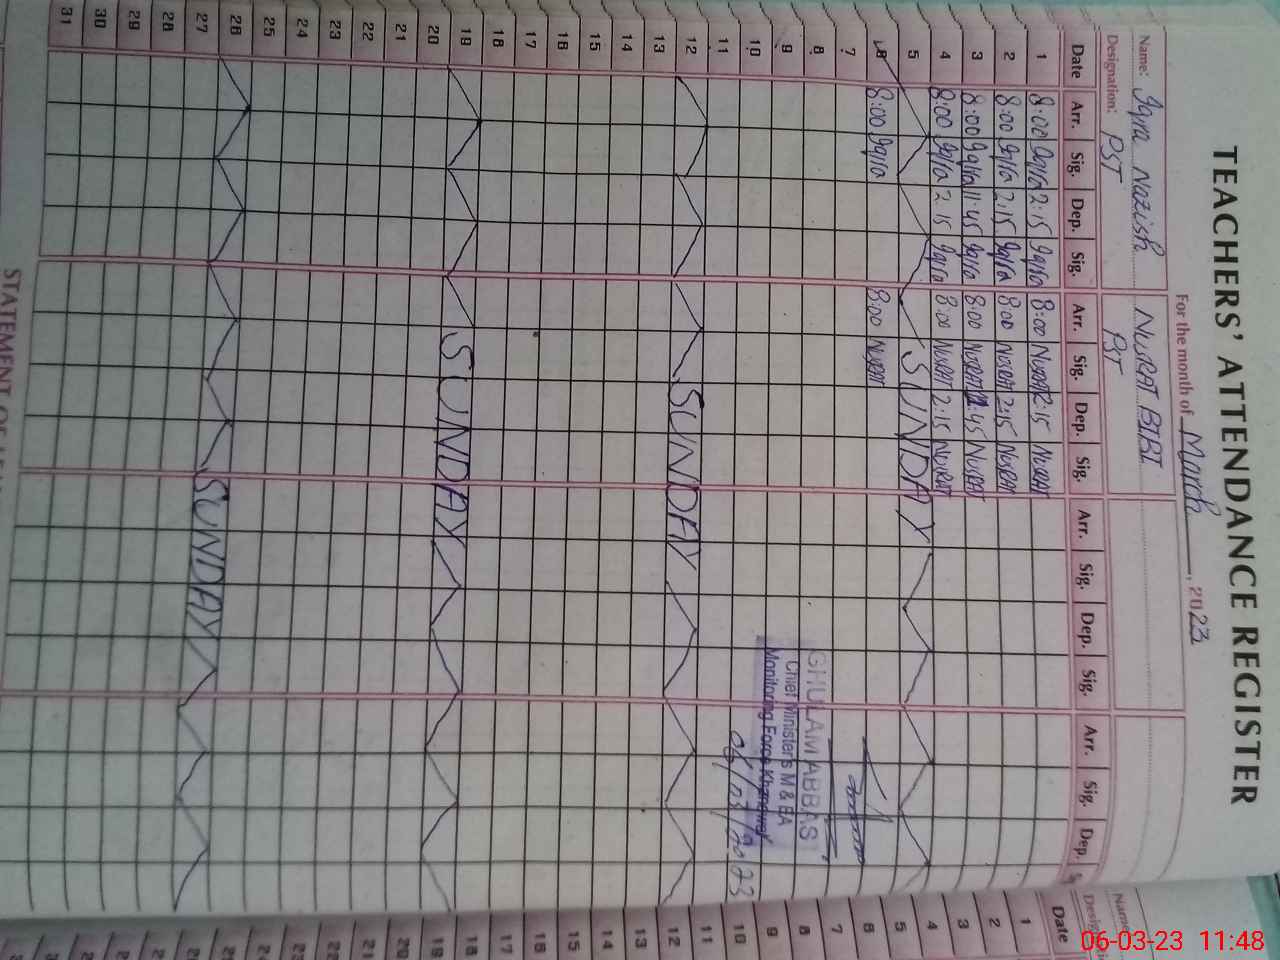 TEACHERS' ATTENDANCE REGISTER
For the month of March, 2023
Name: Iqra Nazish NUSRAT BIBI
Designation: PST PST
Date Arr. Sig. Dep. Sig. Arr. Sig. Dep. Sig. Arr. Sig. Dep. Sig. Arr. Sig. Dep.
1 8:00 Iqra 2:15 Iqra 8:00 Nusrat 2:15 Nusrat
2 8:00 Iqra 2:15 Iqra 8:00 Nusrat 2:15 Nusrat
3 8:00 Iqra 11:45 Iqra 8:00 Nusrat 11:45 Nusrat
4 8:00 Iqra 2:15 Iqra 8:00 Nusrat 2:15 Nusrat
5 SUNDAY
6 8:00 Iqra 8:00 Nusrat
7
8
9
10
11
12 SUNDAY
13
14
15
16
17
18
19 SUNDAY
20
21
22
23
24
25
26 SUNDAY
27
28
29
30
31
GHULAM ABBAS
Chief Minister's M & EA
Monitoring Force Khanewal
06/03/2023
STATEMENT OF
Name
Date
1
2
3
4
5
6
7
8
9
10
11
12
13
14
15
16
17
18
19
20
21
22
23
24
25
26
27
28
29
30
31
06-03-23 11:48